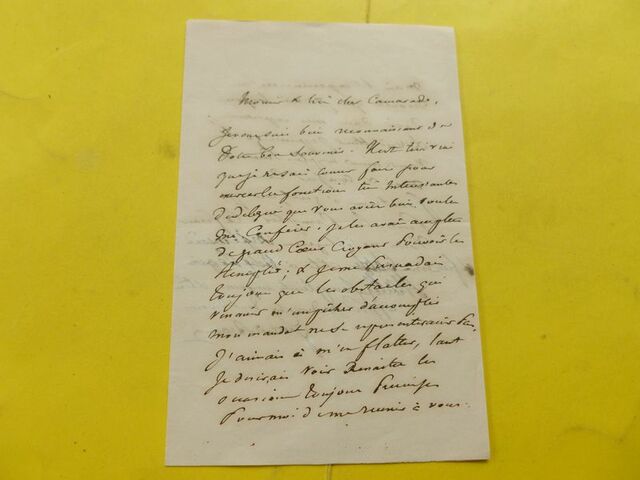 Monsieur & très cher Camarade,
Je vous suis bien reconnaissant de
votre bon souvenir. Il est très vrai
que je ne sais comment faire pour
exercer les fonctions très intéressantes
de délégué que vous aviez bien voulu
me Conférer. Je les avais acceptées
de grand Cœur Croyant pouvoir les
Remplir; & Je me persuadais
toujours que les obstacles qui
venaient m'empêcher d'accomplir
mon mandat ne se représenteraient pas.
J'aimais à m'en flatter, tant
Je désirais voir Renaître les
occasions toujours précieuses
pour moi de me réunir à vous.